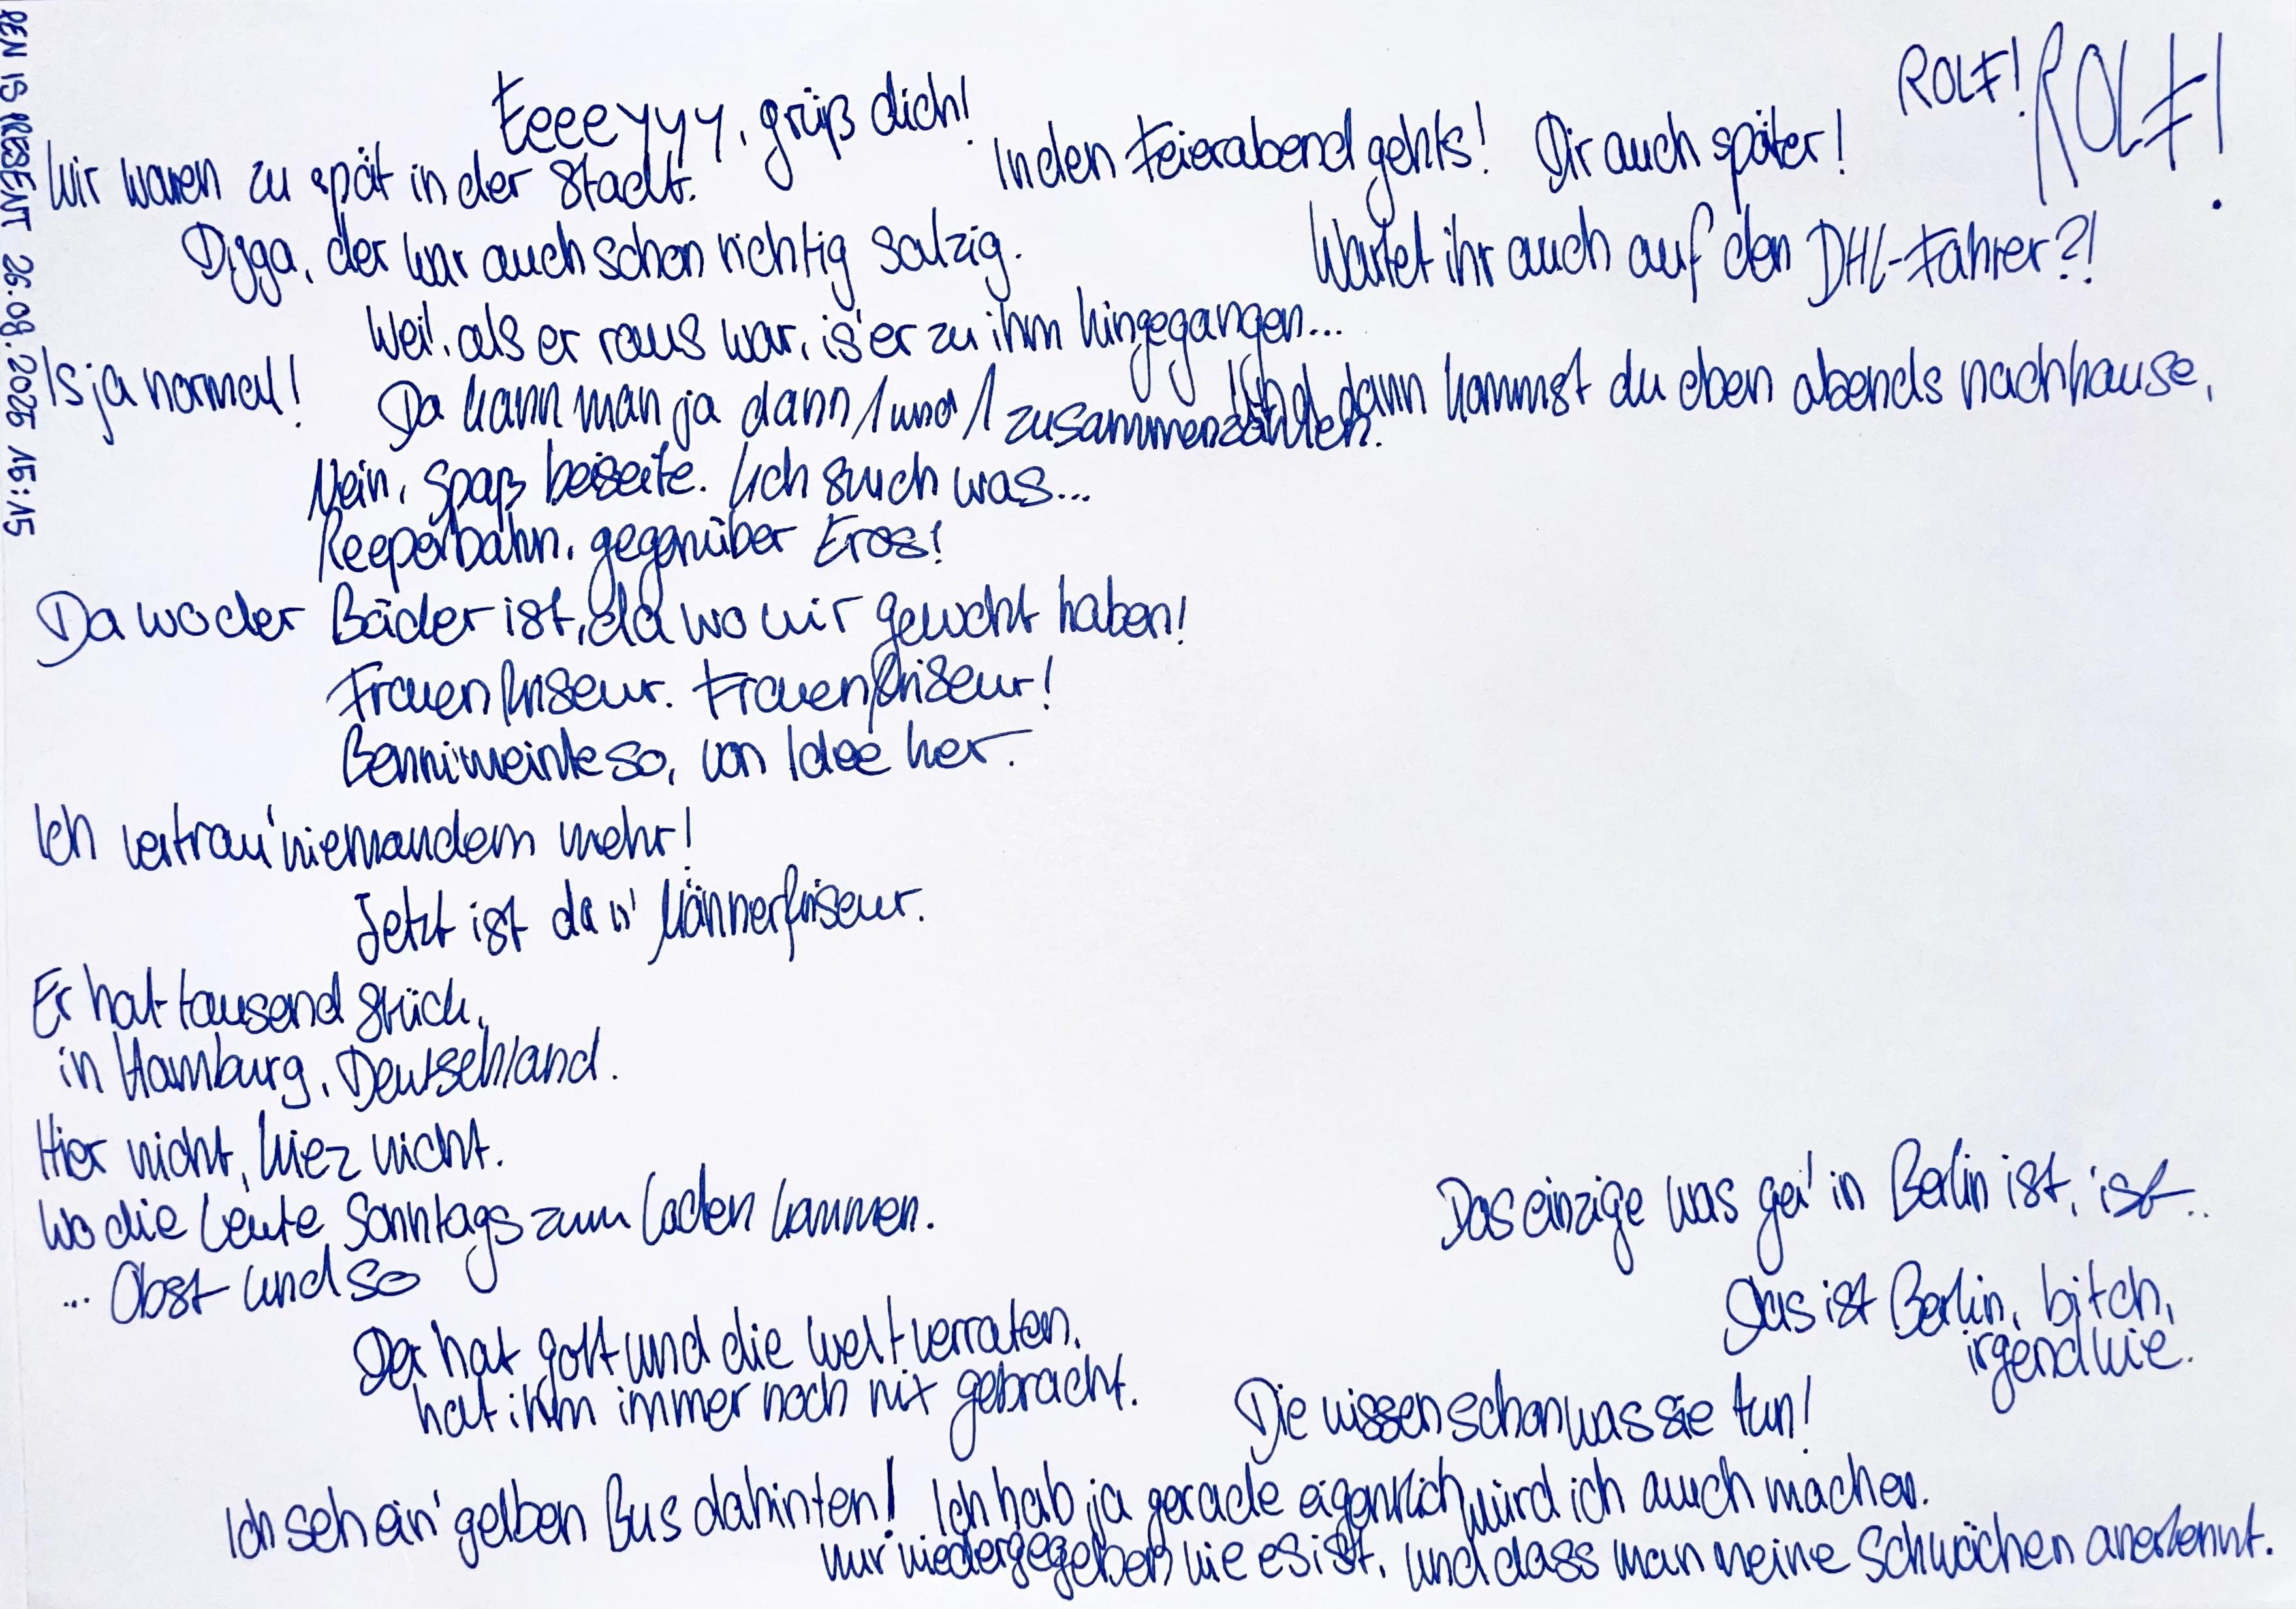 REN IS PRESENT 26.08.2025 15:15
ROLF! ROLF!
Eeeeyyy, grüß dich!
In den Feierabend gehts! Dir auch später!
Wir waren zu spät in der Stadt.
Digga, der war auch schon richtig salzig.
Wartet ihr auch auf den DHL-Fahrer?!
Weil, als er raus war, is' er zu ihm hingegangen...
Is ja normal!
Da kann man ja dann 1 und 1 zusammenzählen.
Und dann kommst du eben abends nachhause,
Nein, Spaß beiseite. Ich such was...
Reeperbahn, gegenüber Eros!
Da wo der Bäcker ist, da wo wir gewohnt haben!
Frauenfriseur. Frauenfriseur!
Benni meinte so, von Idee her.
Ich vertrau' niemandem mehr!
Jetzt ist da n' Männerfriseur.
Er hat tausend Stück,
in Hamburg, Deutschland.
Hier nicht, Kiez nicht.
Wo die Leute Sonntags zum Laden kommen.
... Obst und so
Das einzige was gei' in Berlin ist, ist..
Das ist Berlin, bitch,
irgendwie.
Der hat Gott und die Welt verraten,
hat ihm immer noch nix gebracht.
Die wissen schon was sie tun!
Ich seh ein' gelben Bus dahinten! Ich hab ja gerade eigentlich
würd ich auch machen.
nur wiedergegeben wie es ist, und dass man meine Schwächen anerkennt.